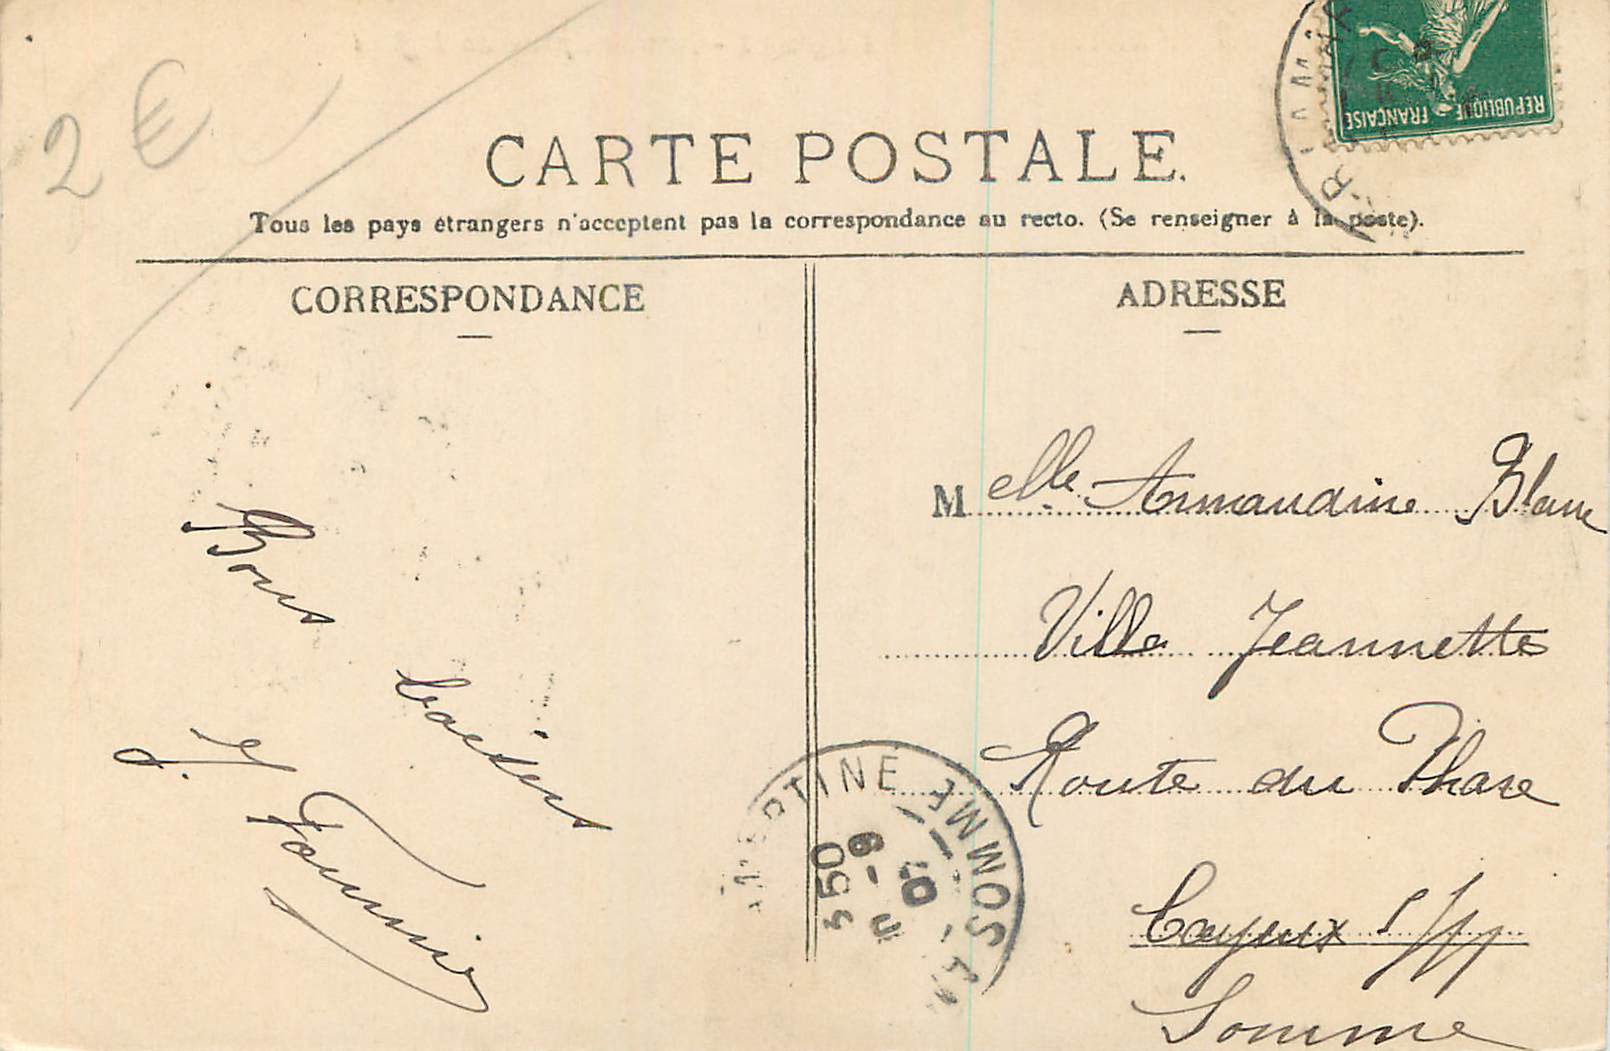 2 €
CARTE POSTALE.
Tous les pays étrangers n'acceptent pas la correspondance au recto. (Se renseigner à la poste).
CORRESPONDANCE
ADRESSE
REPUBLIQUE FRANÇAISE
Bons
baisers
J. Fournier
Melle Armandine Blanc
Villa Jeannette
Route du Phare
Cayeux s/
Somme
SOMME
350
6-9